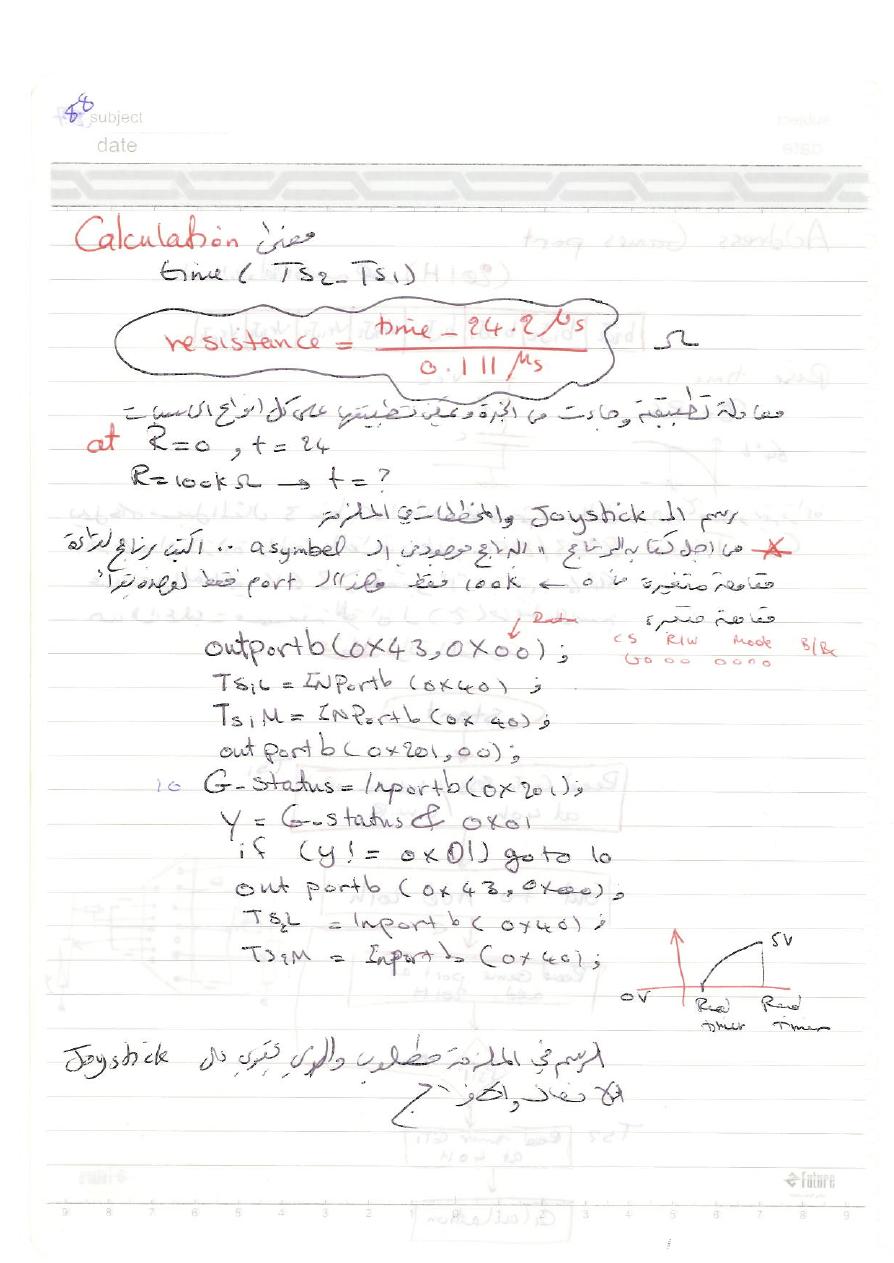 88 subject
date
Calculation معنى
time ( TS2 _ TS1)
resistance = time - 24.2 μs / 0.111 μs Ω
معادلة تطبيقية وجاءت من الخبرة و تطبيقها على كل انواع الحاسبات
at R=0 , t = 24
R=100kΩ → t = ?
رسم الـ Joystick والمخططات في الملزمة
من اجل كتابة البرنامج " البرنامج موجود في الـ asymbel .. اكتب برنامج لقراءة
مقاومة متغيرة من 0 ← 100k فقط وهذا الـ port فقط لوحده يقرأ
مقاومة متغيرة
Data
CS R/W Mode B/Bc
outportb(0x43,0x00);
0000 0000
TS1L = INPortb (0x40) ;
TS1M = INPortb(0x 40);
out portb(0x201,00);
10 G-status = Inportb(0x201);
Y = G-status & 0x01
if (y! = 0x01) goto 10
out portb (0x43,0x00);
TS2L = Inportb( 0x40) ;
TS2M = Inportb (0x40);
5V
0V Read timer Read timer
الرسم في الملزمة مطلوب والذي يحتوي على Joystick